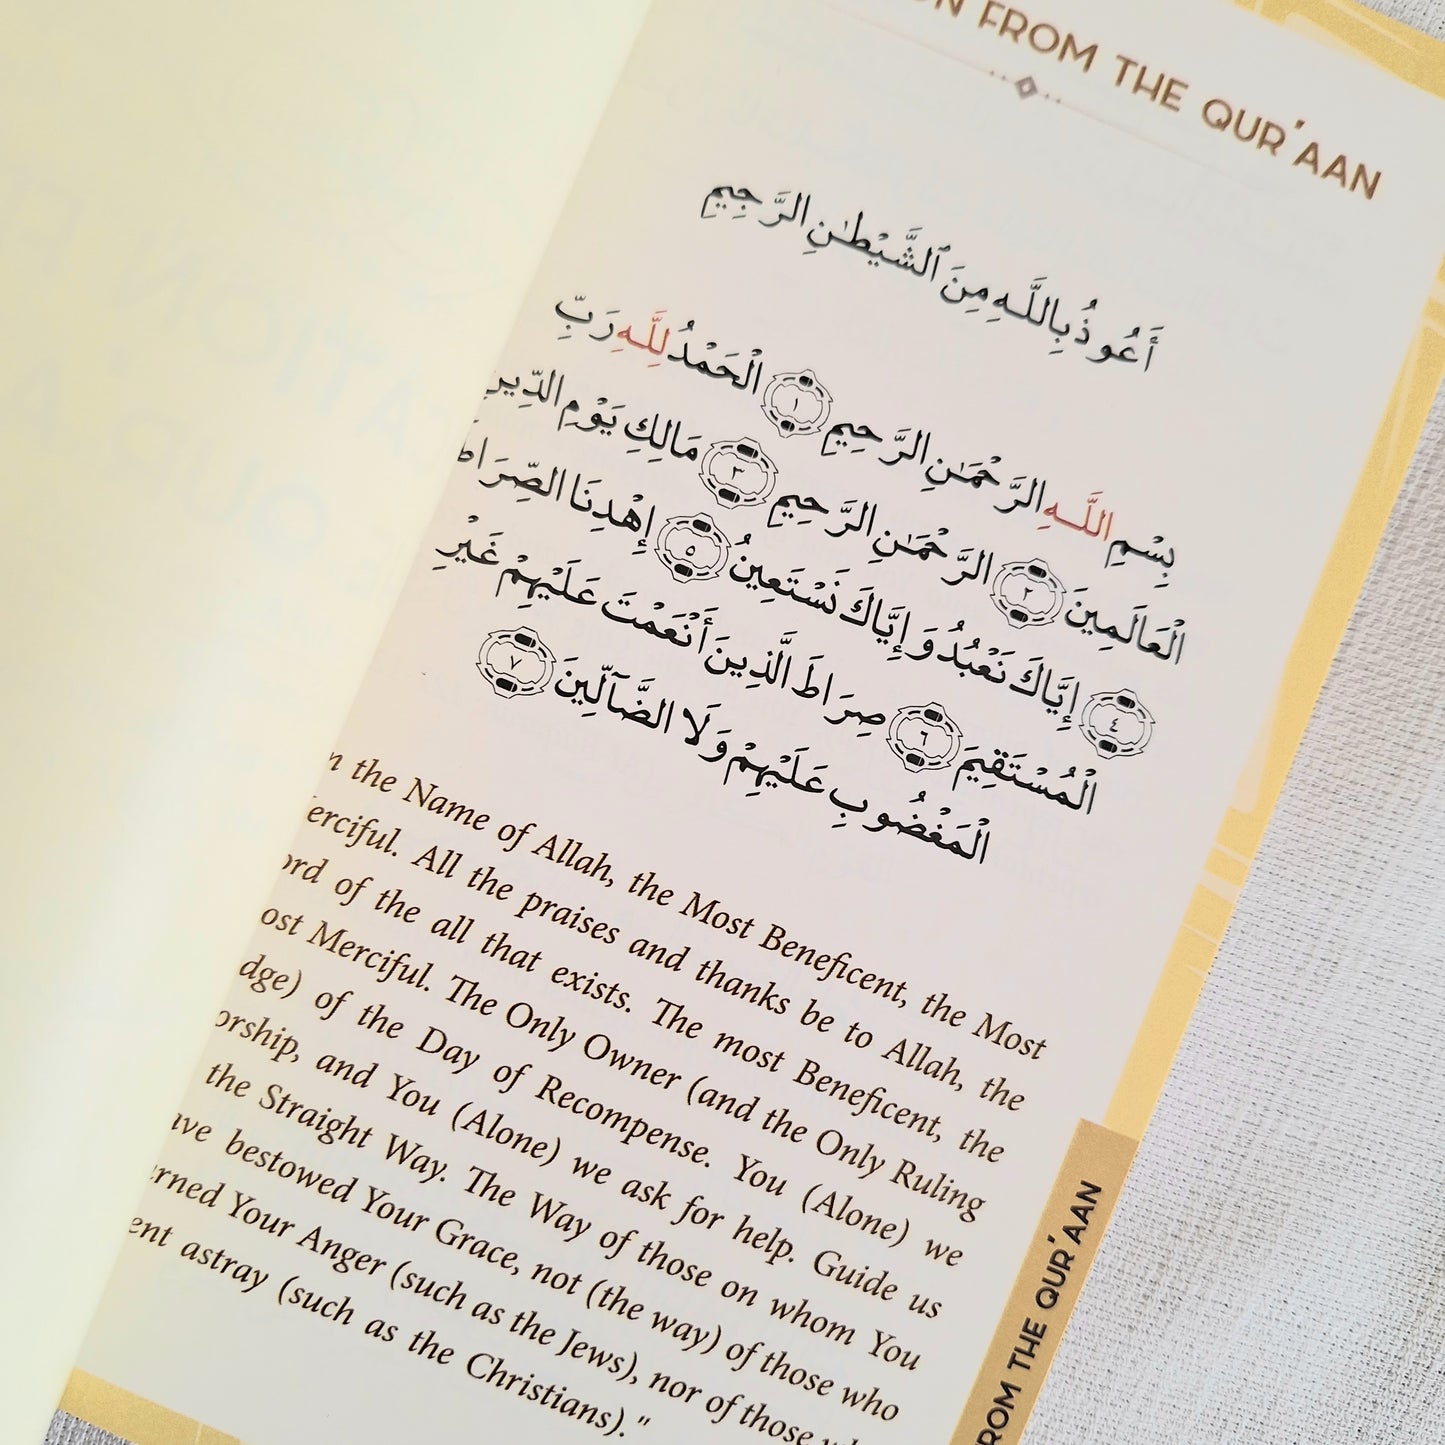 ON FROM THE QUR'AAN
أَعُوذُ بِاللَّهِ مِنَ ٱلشَّيْطَٰنِ الرَّجِيمِ
بِسْمِ اللَّهِ الرَّحْمَٰنِ الرَّحِيمِ ١ الْحَمْدُ لِلَّهِ رَبِّ
الْعَالَمِينَ ٢ الرَّحْمَٰنِ الرَّحِيمِ ٣ مَالِكِ يَوْمِ الدِّينِ
٤ إِيَّاكَ نَعْبُدُ وَإِيَّاكَ نَسْتَعِينُ ٥ إِهْدِنَا الصِّرَاطَ
الْمُسْتَقِيمَ ٦ صِرَاطَ الَّذِينَ أَنْعَمْتَ عَلَيْهِمْ غَيْرِ
الْمَغْضُوبِ عَلَيْهِمْ وَلَا الضَّآلِّينَ ٧
n the Name of Allah, the Most Beneficent, the Most
erciful. All the praises and thanks be to Allah, the
ord of the all that exists. The most Beneficent, the
ost Merciful. The Only Owner (and the Only Ruling
dge) of the Day of Recompense. You (Alone) we
orship, and You (Alone) we ask for help. Guide us
the Straight Way. The Way of those on whom You
ave bestowed Your Grace, not (the way) of those who
rned Your Anger (such as the Jews), nor of those
ent astray (such as the Christians)."
ROM THE QUR'AAN